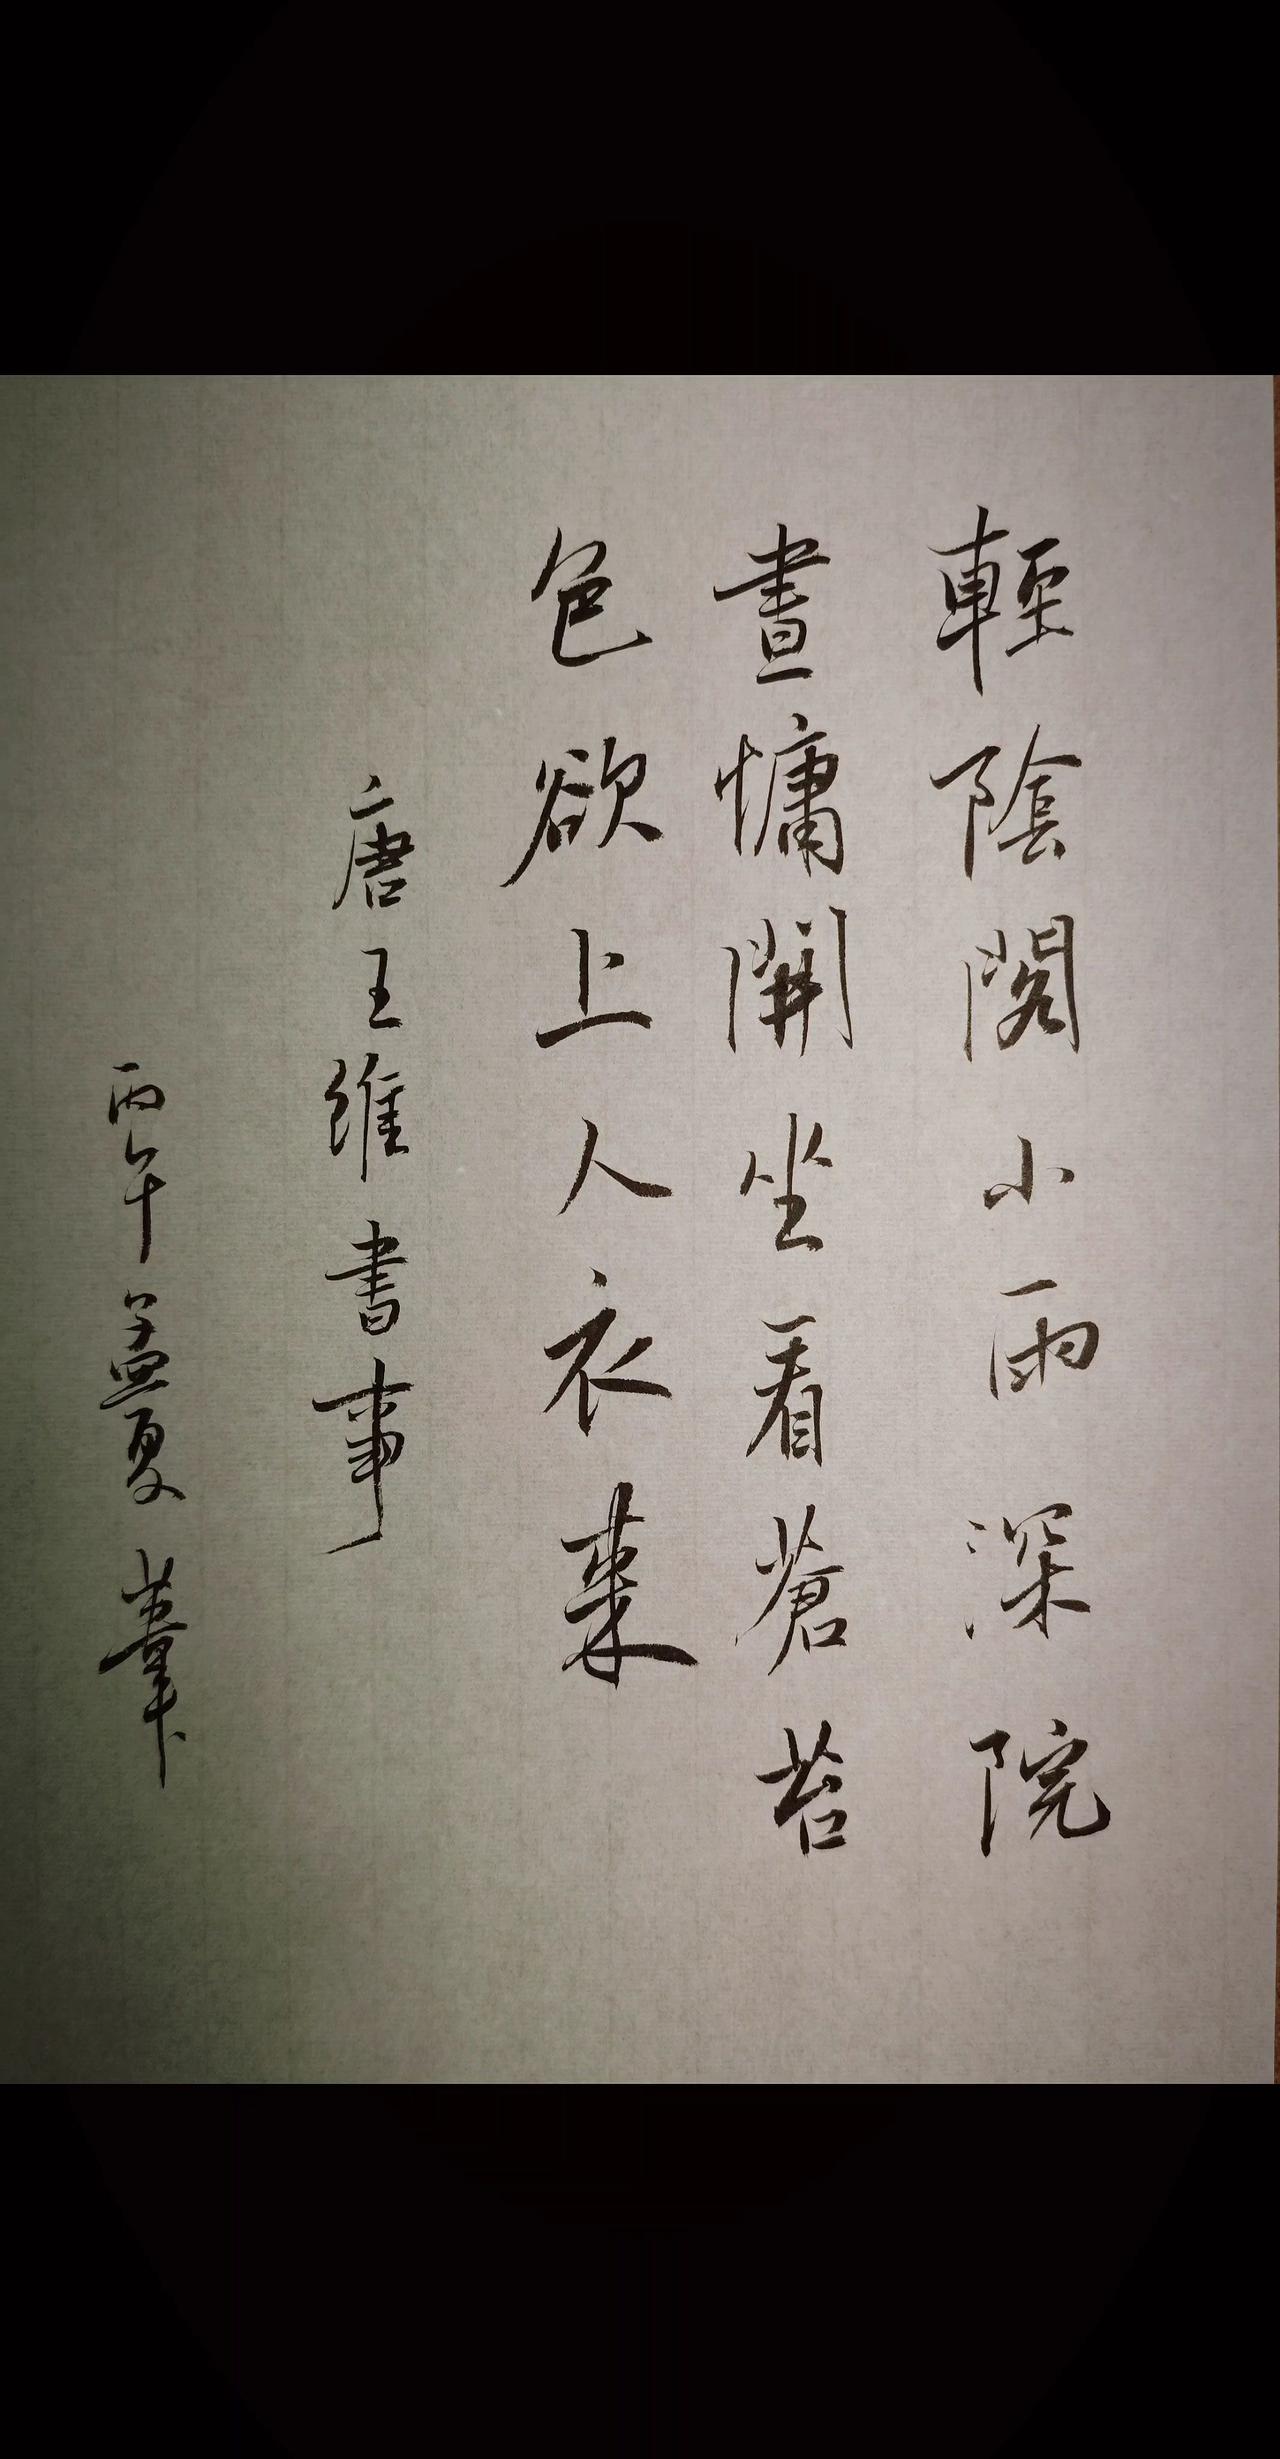 輕陰閣小雨深院
晝慵開坐看蒼苔
色欲上人衣來
唐王維書事
丙午孟夏